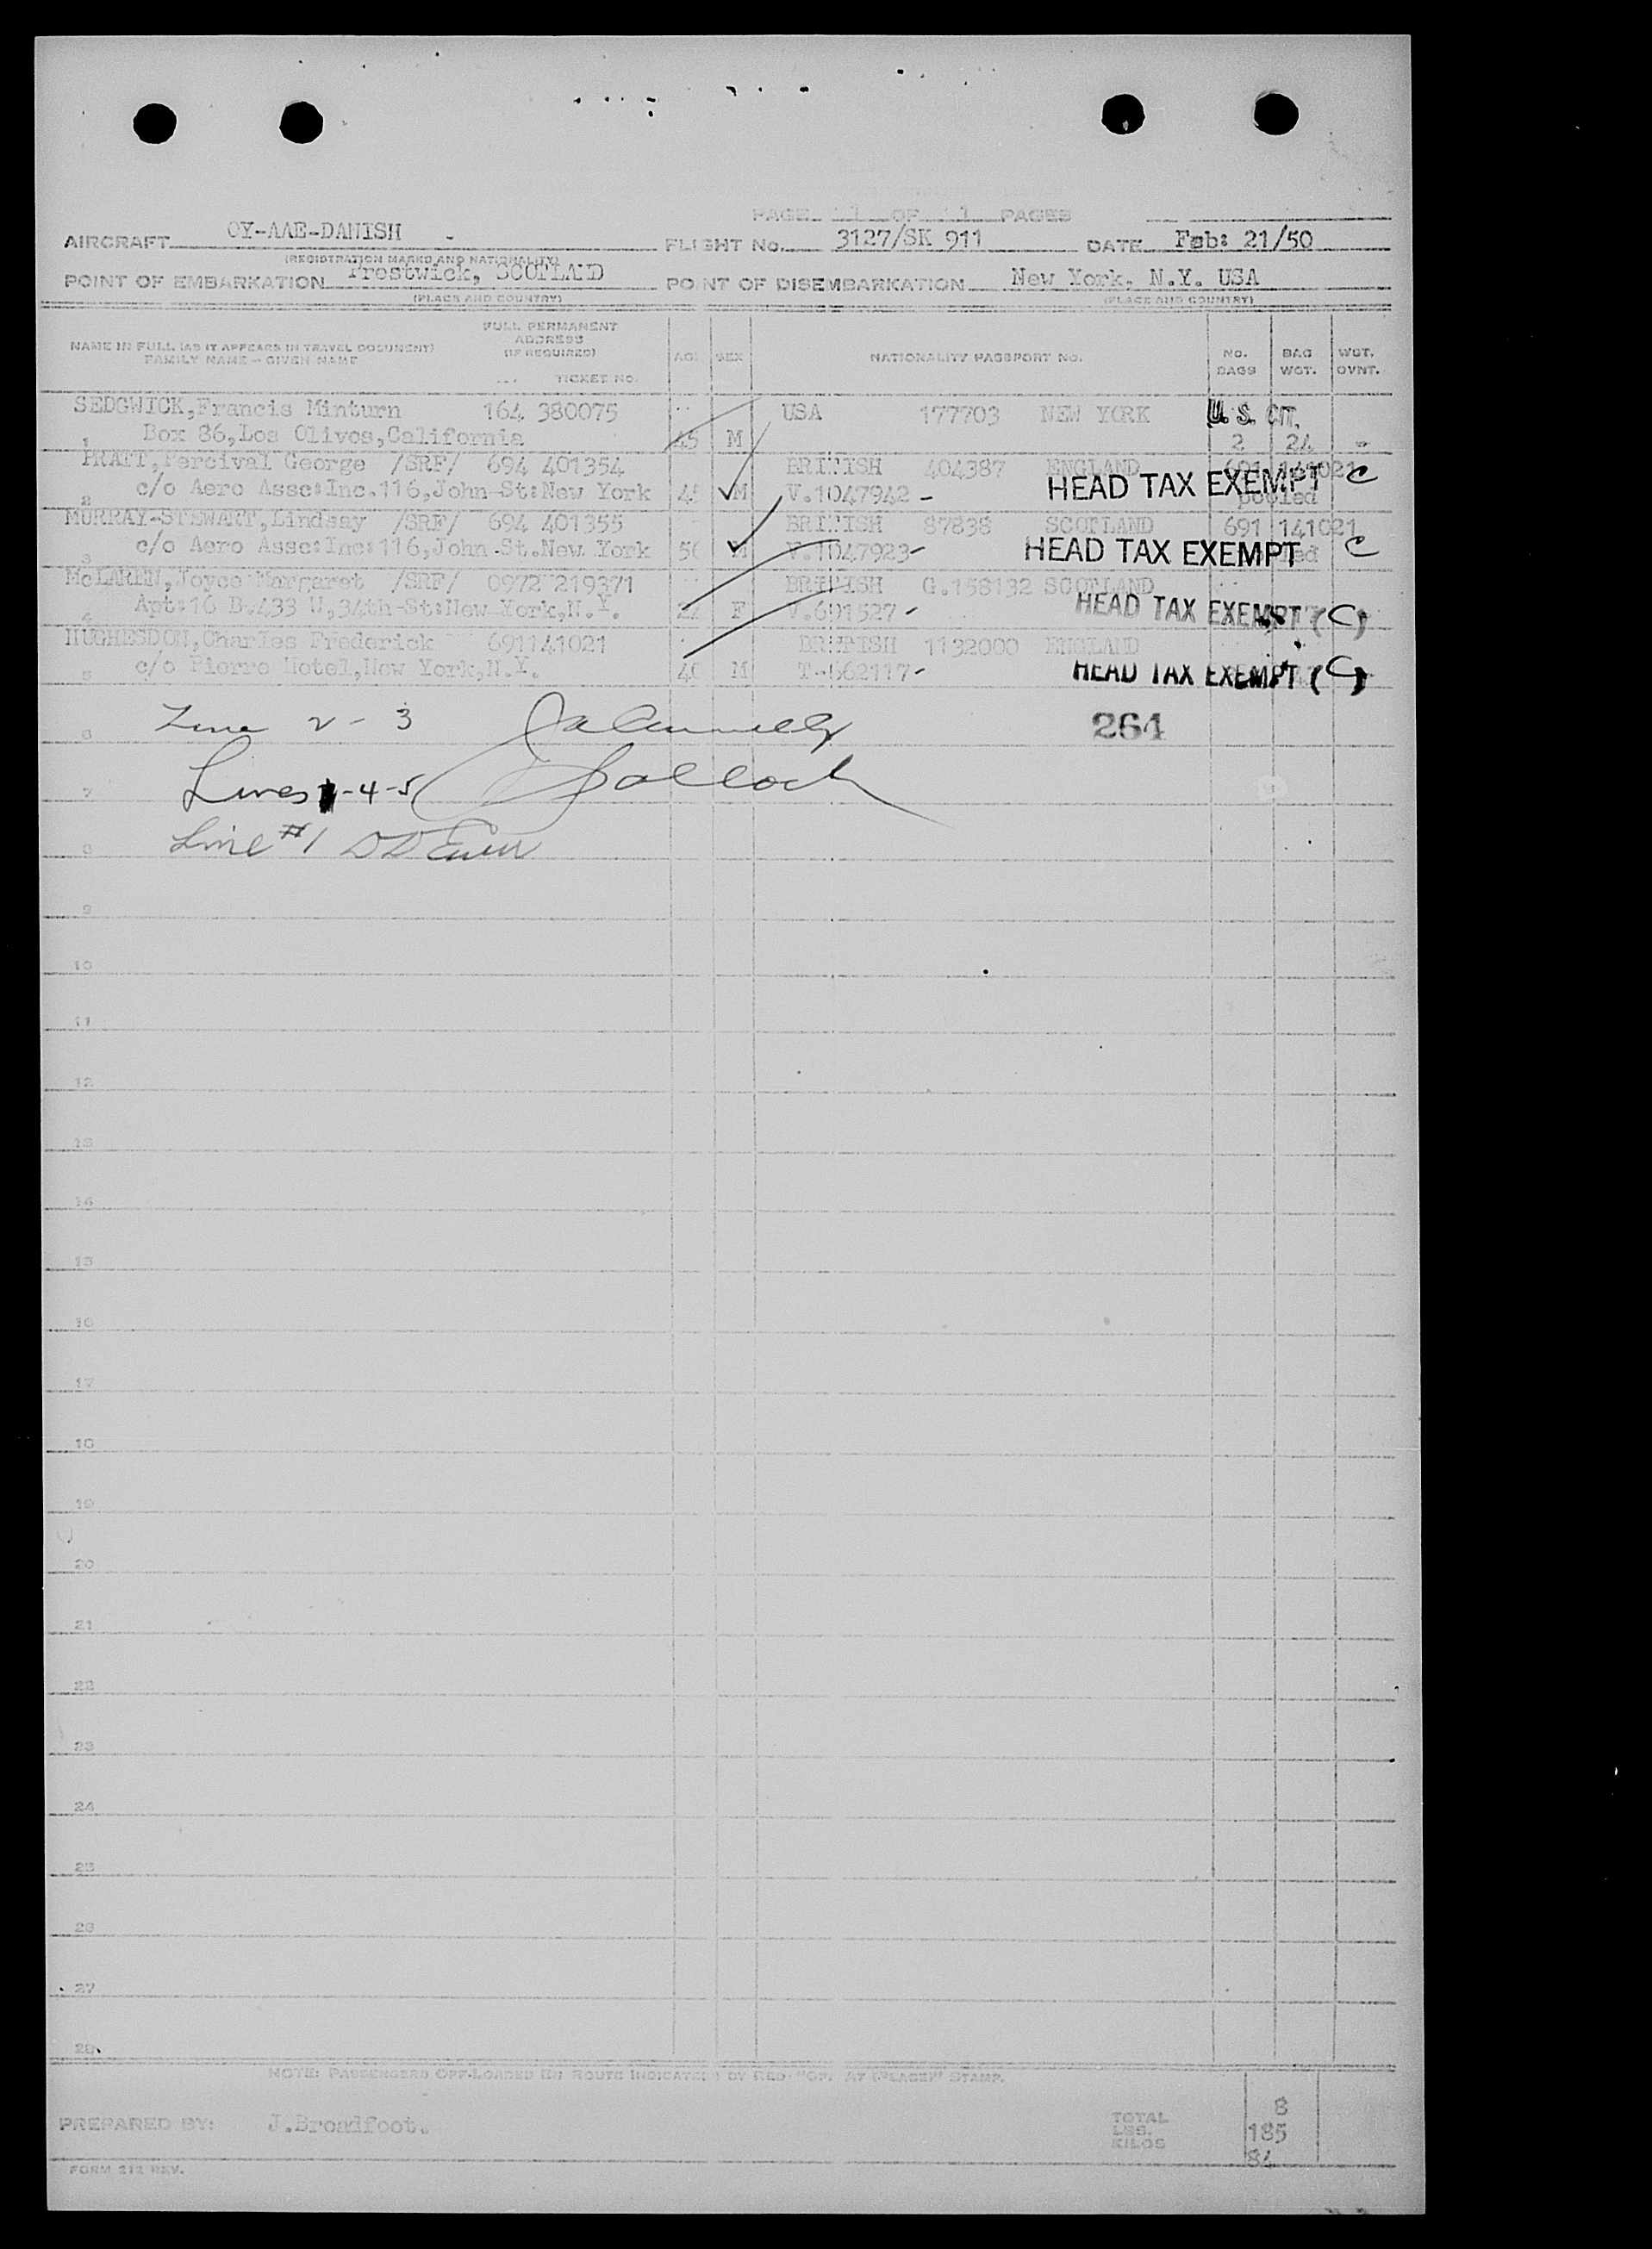 PAGE 1 OF 1 PAGES
AIRCRAFT OY-AAE-DANISH FLIGHT No. 3127/SK 911 DATE Feb: 21/50
(REGISTRATION MARKS AND NATIONALITY)
POINT OF EMBARKATION Prestwick, SCOTLAND POINT OF DISEMBARKATION New York. N.Y. USA
(PLACE AND COUNTRY) (PLACE AND COUNTRY)
NAME IN FULL (AS IT APPEARS IN TRAVEL DOCUMENT) FAMILY NAME - GIVEN NAME
FULL PERMANENT ADDRESS (IF REQUIRED) TICKET NO.
AGE SEX NATIONALITY PASSPORT NO. No. BAGS BAG WGT. WGT. OVNT.
SEDGWICK,Francis Minturn 164 380075 USA 177703 NEW YORK U. S. CIT.
1 Box 86,Los Olivos,California 45 M 2 24 -
PRATT,Percival George /SRF/ 694 401354 BRITISH 404387 ENGLAND 691 141021
2 c/o Aero Assc:Inc.116,John-St:New York M V.1047942 - HEAD TAX EXEMPT C pooled
MURRAY-STEWART,Lindsay /SRF/ 694 401355 BRITISH 87838 SCOTLAND 691 141021
3 c/o Aero Assc:Inc:116,John-St.New York M V.1047923- HEAD TAX EXEMPT C
McLAREN,Joyce Margaret /SRF/ 0972 219371 BRITISH G.158132 SCOTLAND
4 Apt:16 B.433 W,34th-St:New York,N.Y. F V.691527 - HEAD TAX EXEMPT (C)
HUGHESDON,Charles Frederick 691141021 BRITISH 1132000 ENGLAND
5 c/o Pierre Hotel,New York,N.Y. M T-562117- HEAD TAX EXEMPT (C)
6 Line 2 - 3 264
7 Lines -4-5
8 Line #1
9
10
11
12
13
14
15
16
17
18
19
20
21
22
23
24
25
26
27
28
NOTE: PASSENGERS OFF-LOADED EN ROUTE INDICATED BY RED "OFF AT (PLACE)" STAMP.
PREPARED BY: J.Broadfoot. TOTAL 8
LBS. 185
KILOS 84
FORM 212 REV.